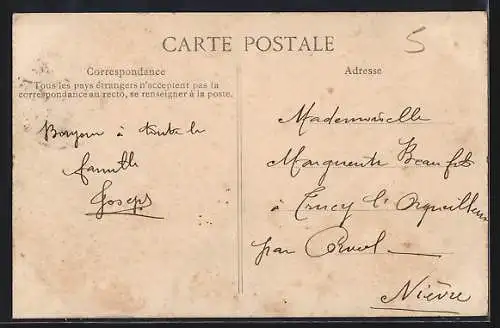 CARTE POSTALE
5
Correspondance
Tous les pays étrangers n'acceptent pas la
correspondance au recto, se renseigner à la poste.
Bonjour à toute la
famille
Joseph
Adresse
Mademoiselle
Marguerite
à Trucy l'Orgueilleux
par Corvol
Nièvre